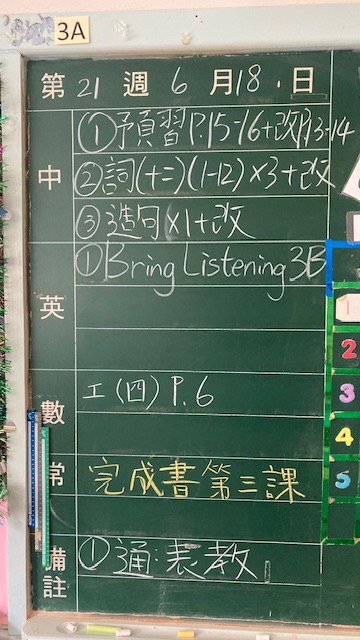 3A
第 21 週 6 月 18 日
中
①預習 P.15-16+改P.13-14
②詞(十二)(1-12)×3+改
③造句×1+改
英
①Bring Listening 3B
數
工(四) P.6
常
完成書第三課
備註
①通:表教
1
2
3
4
5